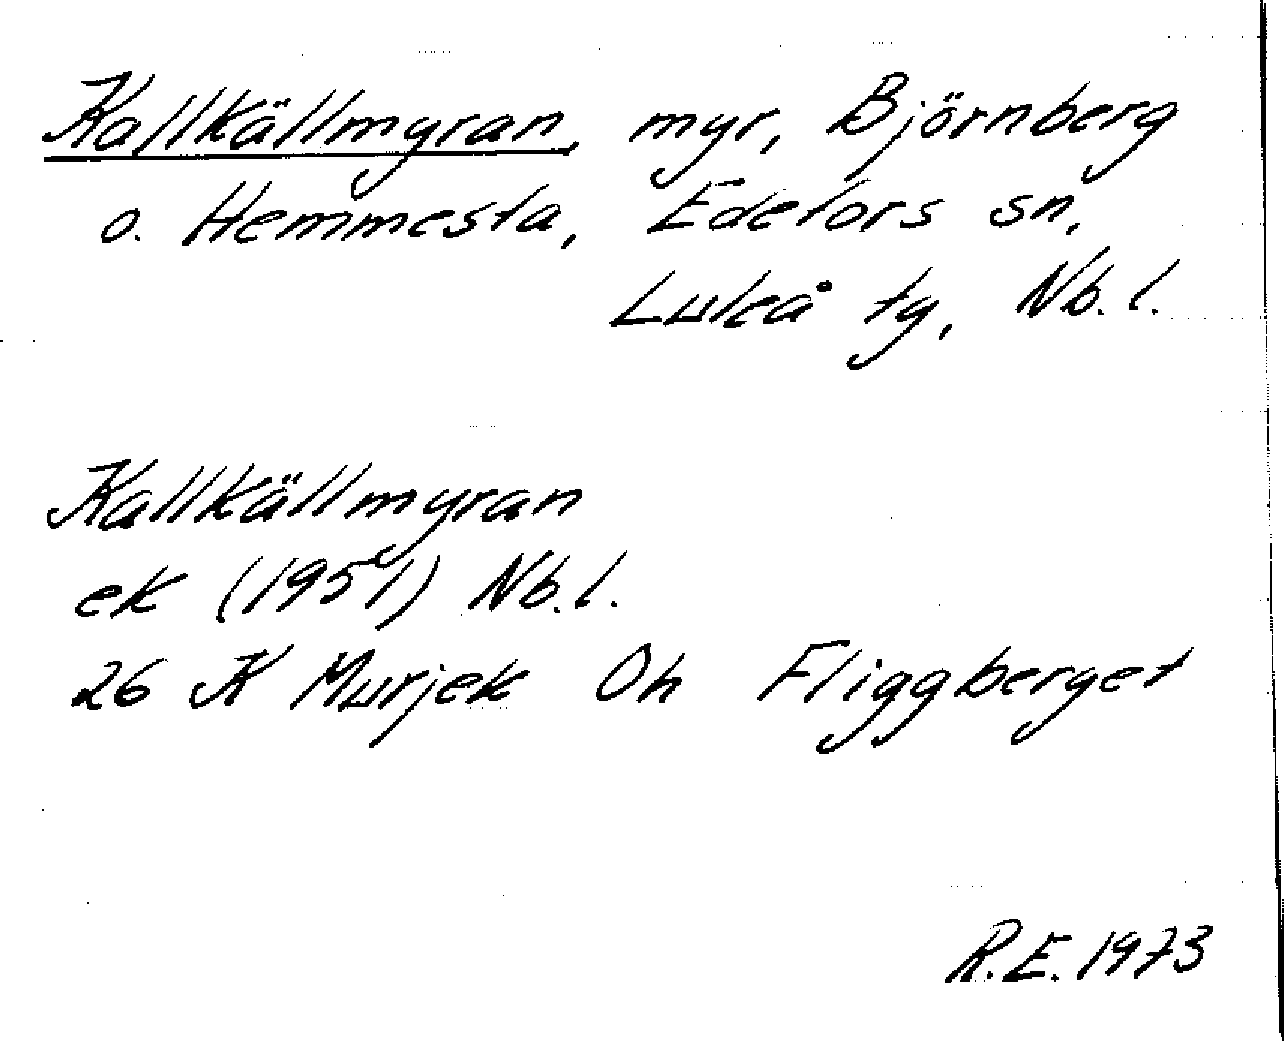 Kallkällmyran, myr, Björnberg
o. Hemmesta, Edefors sn,
Luleå tg, Nb. l.
Kallkällmyran
ek (1951) Nb. l.
26 K Murjek Oh Fliggberget
R. E. 1973